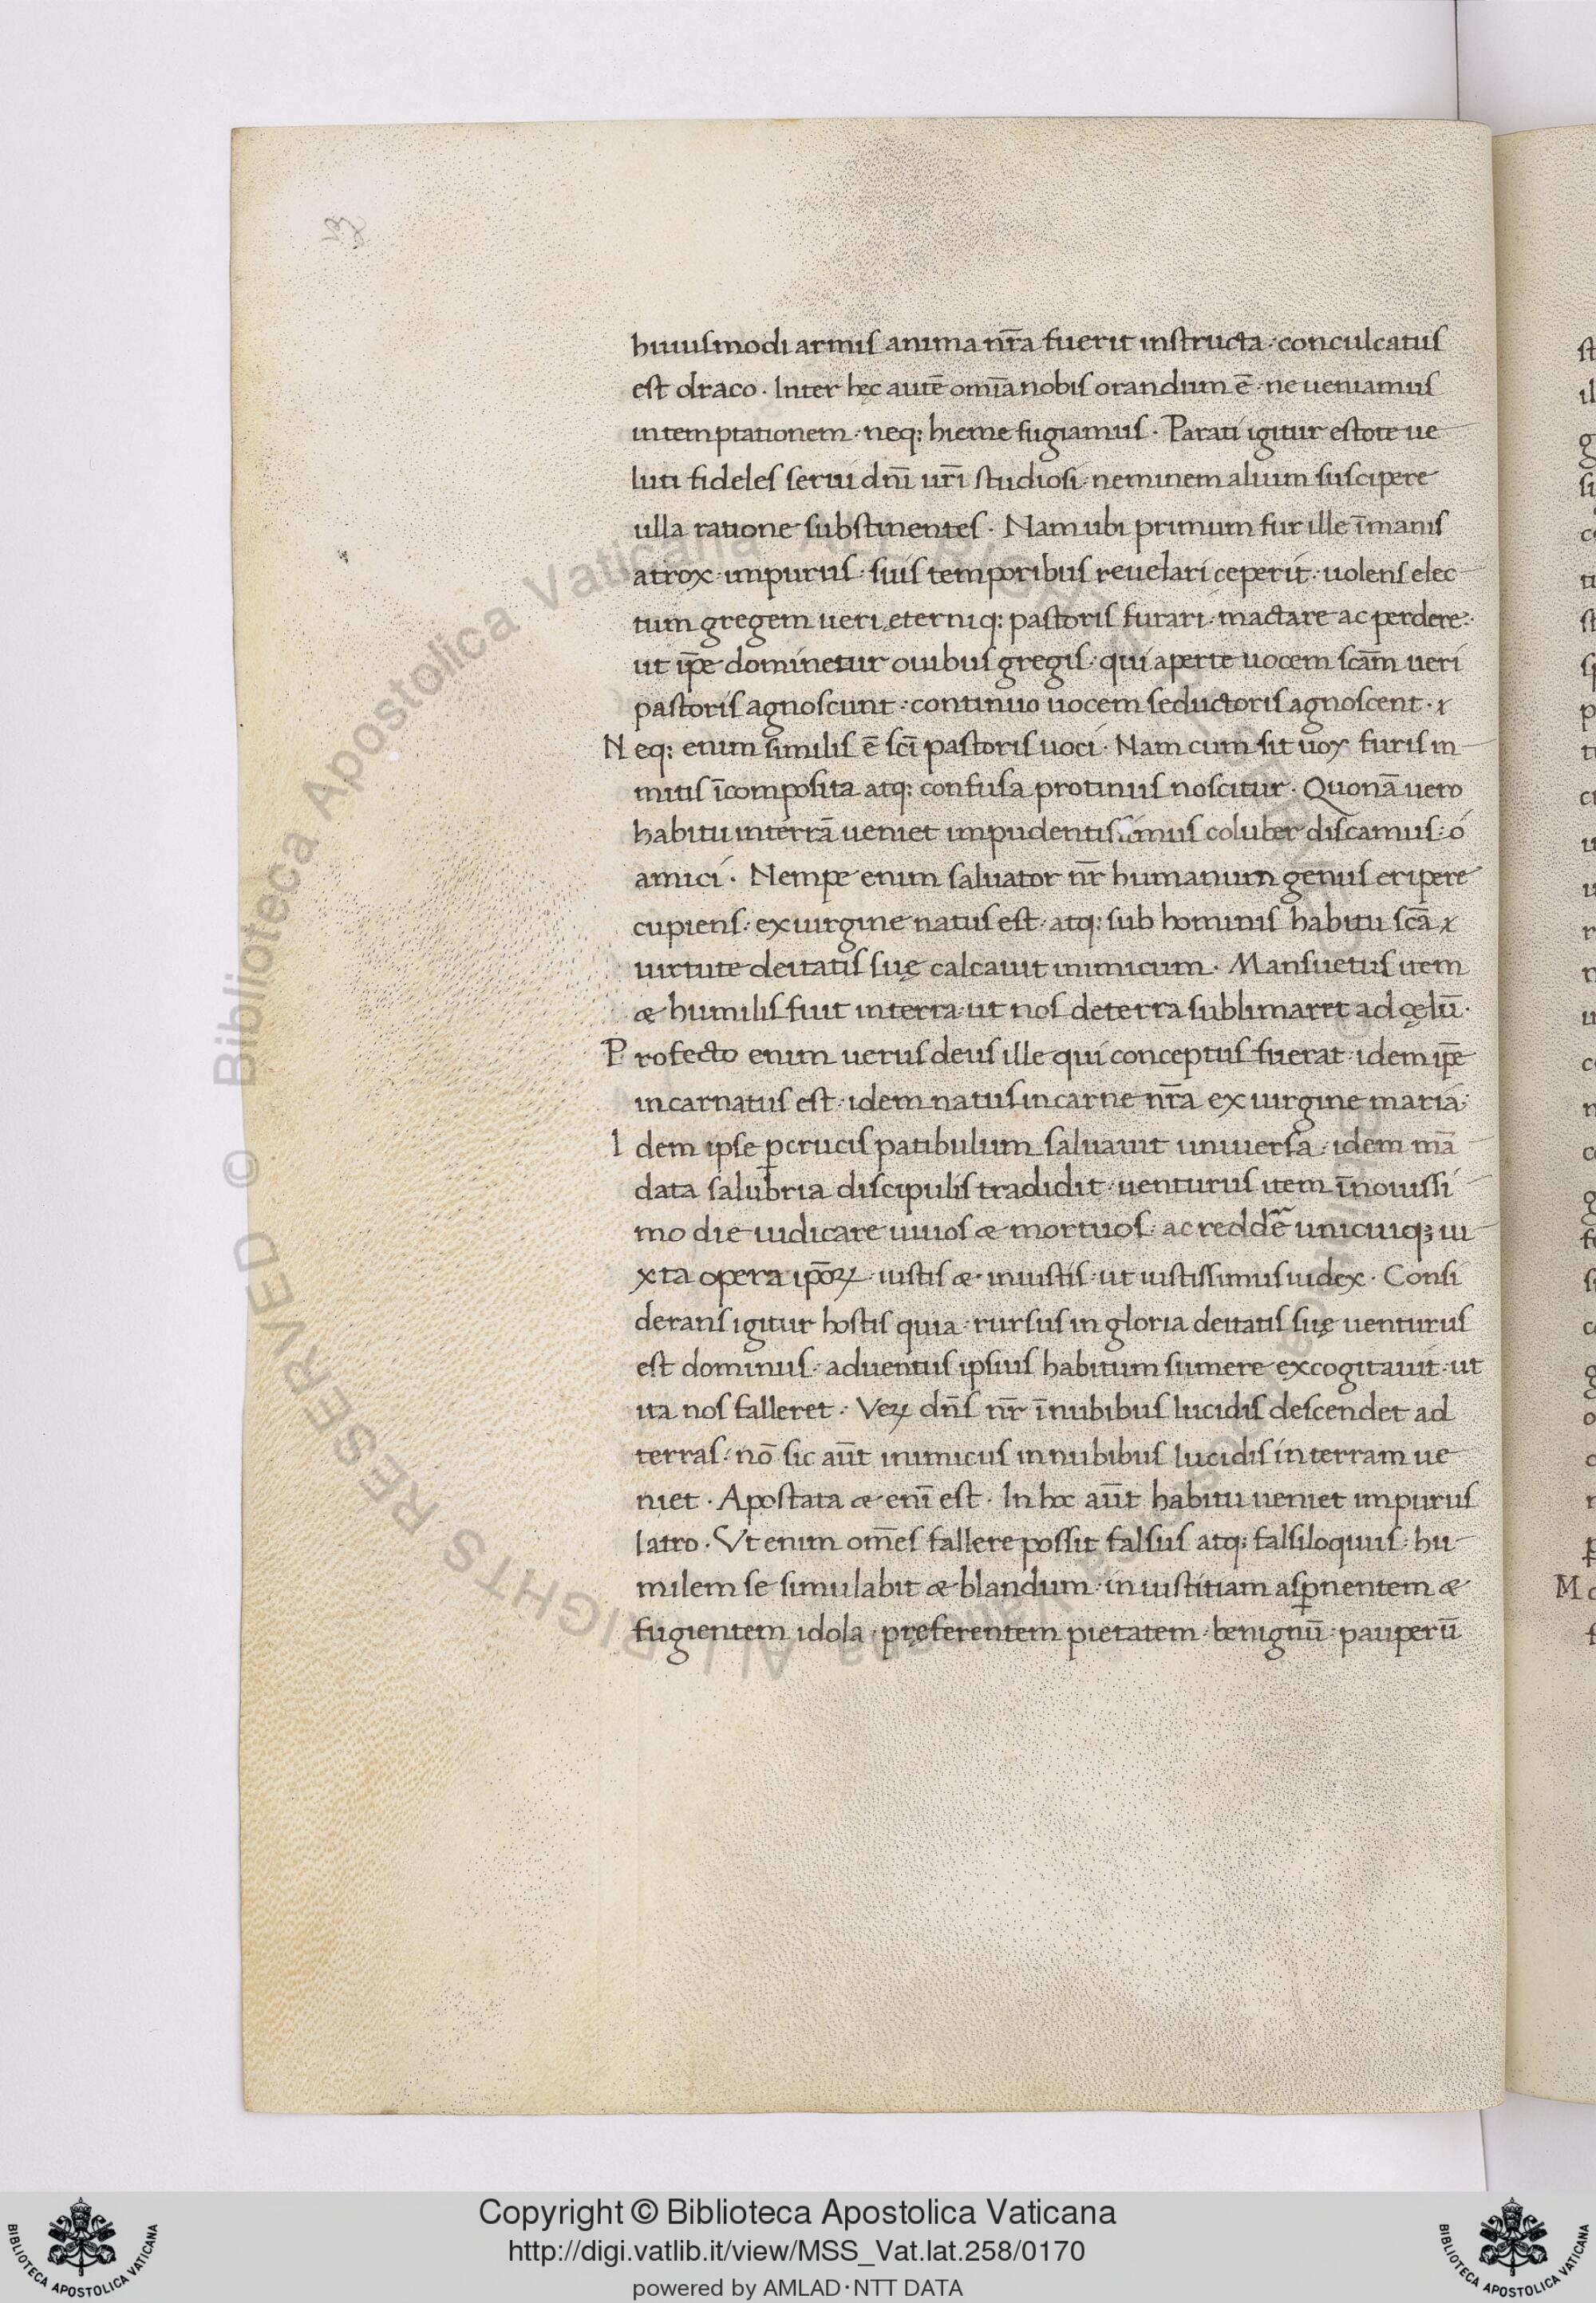 huiusmodi armis anima nr̄a fuerit instructa · conculcatus
est draco · Inter hęc autē om̄ia nobis orandum ē · ne ueniamus
in temptationem · neq; hieme fugiamus · Parati igitur estote ue
luti fideles serui dn̄i ur̄i studiosi · neminem alium suscipere
ulla ratione substinentes · Nam ubi primum fur ille īmanis
atrox · impurus · suis temporibus reuelari ceperit · uolens elec
tum gregem ueri eterniq; pastoris furari · mactare ac perdere ·
ut ip̄e dominetur ouibus gregis · qui aperte uocem scām ueri
pastoris agnoscunt · continuo uocem seductoris agnoscent ·
Neq; enim similis ē sc̄i pastoris uoci · Nam cum sit uox furis in
mitis īcomposita atq; confusa protinus noscitur · Quonā uero
habitu in terrā ueniet impudentissimus coluber discamus · ó
amici · Nempe enim saluator nr̄ humanum genus eripere
cupiens · ex uirgine natus est · atq; sub hominis habitu scā
uirtute deitatis suę calcauit inimicum · Mansuetus item
æ humilis fuit in terra · ut nos de terra sublimaret ad cęlū ·
Profecto enim uerus deus ille qui conceptus fuerat · idem ip̄e
incarnatus est · idem natus in carne nr̄a ex uirgine maria ·
Idem ipse ꝑ crucis patibulum saluauit uniuersa · idem mā
data salubria discipulis tradidit · uenturus item ī nouissi
mo die iudicare uiuos æ mortuos · ac redde᷑ unicuiq; iu
xta opera ip̄oꝝ · iustis æ iniustis · ut iustissimus iudex · Consi
derans igitur hostis quia · rursus in gloria deitatis suę uenturus
est dominus · aduentus ipsius habitum sumere excogitauit · ut
ita nos falleret · Veꝝ dn̄s nr̄ ī nubibus lucidis descendet ad
terras · nō sic aūt inimicus in nubibus lucidis in terram ue
niet · Apostata æ enī est · In hoc aūt habitu ueniet impurus
latro · Vt enim om̄es fallere possit falsus atq; falsiloquus · hu
milem se simulabit æ blandum · iniustitiam asꝑnentem æ
fugientem idola · pręferentem pietatem · benignū · pauperū
Copyright © Biblioteca Apostolica Vaticana
http://digi.vatlib.it/view/MSS_Vat.lat.258/0170
powered by AMLAD·NTT DATA
BIBLIOTECA APOSTOLICA VATICANA
BIBLIOTECA APOSTOLICA VATICANA
© Biblioteca Apostolica Vaticana ALL RIGHTS RESERVED